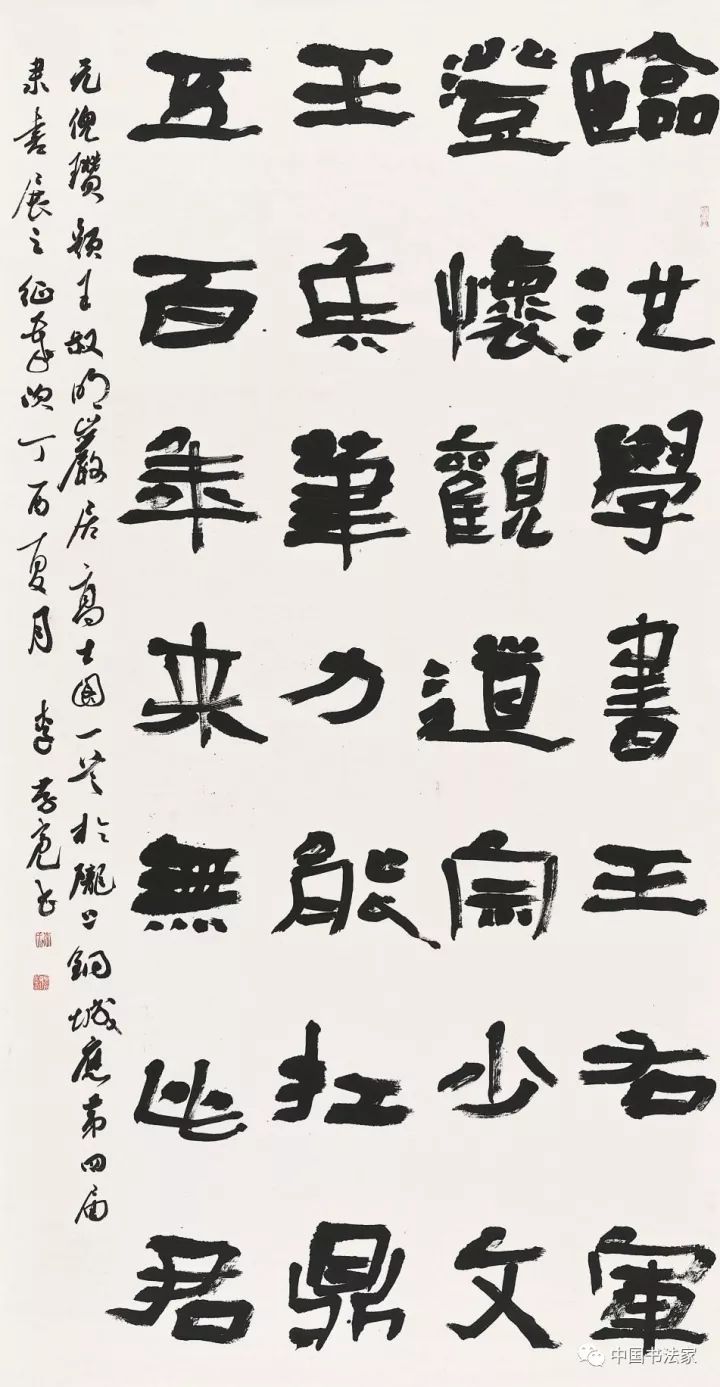 臨池學書王右軍
澄懷觀道宗少文
王矦筆力能扛鼎
五百年来無此君
元倪瓚題王叔明巖居高士圖一首於隴上銅城應第四届
隸書展之征歲次丁酉夏月 李
中国书法家